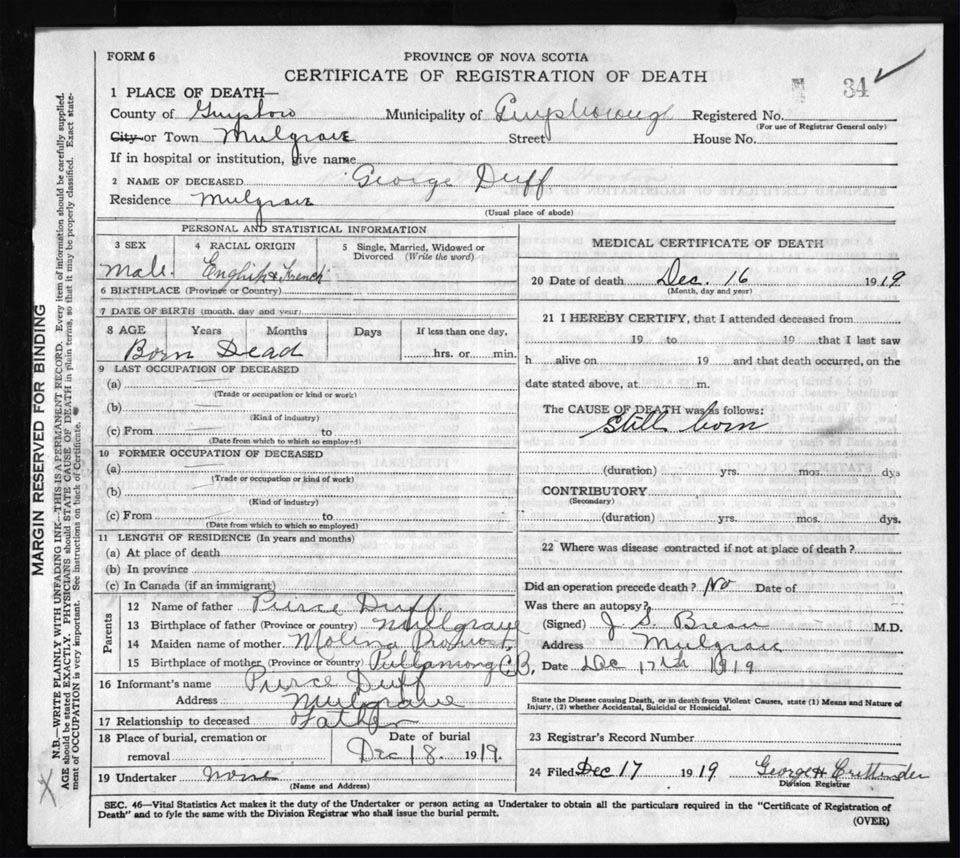 FORM 6
PROVINCE OF NOVA SCOTIA
CERTIFICATE OF REGISTRATION OF DEATH
34
1 PLACE OF DEATH—
County of Municipality of Registered No.
(For use of Registrar General only)
City or Town Mulgrave Street House No.
If in hospital or institution, give name
2 NAME OF DECEASED George Duff
Residence Mulgrave
(Usual place of abode)
PERSONAL AND STATISTICAL INFORMATION
3 SEX 4 RACIAL ORIGIN 5 Single, Married, Widowed or Divorced (Write the word)
Male. English & French
6 BIRTHPLACE (Province or Country)
7 DATE OF BIRTH (month, day and year)
8 AGE Years Months Days If less than one day,
Born Dead hrs. or min.
9 LAST OCCUPATION OF DECEASED
(a)
(Trade or occupation or kind or work)
(b)
(Kind of industry)
(c) From to
(Date from which to which so employed)
10 FORMER OCCUPATION OF DECEASED
(a)
(Trade or occupation or kind of work)
(b)
(Kind of industry)
(c) From to
(Date from which to which so employed)
11 LENGTH OF RESIDENCE (In years and months)
(a) At place of death
(b) In province
(c) In Canada (if an immigrant)
Parents
12 Name of father Pierce Duff
13 Birthplace of father (Province or country) Mulgrave
14 Maiden name of mother
15 Birthplace of mother (Province or country) C.B.
16 Informant's name Pierce Duff
Address Mulgrave
17 Relationship to deceased Father
18 Place of burial, cremation or removal Date of burial
Dec 18. 1919.
19 Undertaker none
(Name and Address)
MEDICAL CERTIFICATE OF DEATH
20 Date of death Dec. 16 1919
(Month, day and year)
21 I HEREBY CERTIFY, that I attended deceased from
19 to 19 that I last saw
h alive on 19 and that death occurred, on the
date stated above, at m.
The CAUSE OF DEATH was as follows:
Still born
(duration) yrs. mos. dys
CONTRIBUTORY
(Secondary)
(duration) yrs. mos. dys.
22 Where was disease contracted if not at place of death?
Did an operation precede death? No Date of
Was there an autopsy?
(Signed) J. S. M.D.
Address Mulgrave
Date Dec 17th 1919
State the Disease causing Death, or in death from Violent Causes, state (1) Means and Nature of
Injury, (2) whether Accidental, Suicidal or Homicidal.
23 Registrar's Record Number
24 Filed Dec 17 1919 George H
Division Registrar
SEC. 46—Vital Statistics Act makes it the duty of the Undertaker or person acting as Undertaker to obtain all the particulars required in the "Certificate of Registration of
Death" and to fyle the same with the Division Registrar who shall issue the burial permit.
(OVER)
MARGIN RESERVED FOR BINDING
N.B.—WRITE PLAINLY WITH UNFADING INK—THIS IS A PERMANENT RECORD. Every item of information should be carefully supplied.
AGE should be stated EXACTLY. PHYSICIANS should STATE CAUSE OF DEATH in plain terms, so that it may be properly classified. Exact state-
ment of OCCUPATION is very important. See instructions on back of Certificate.